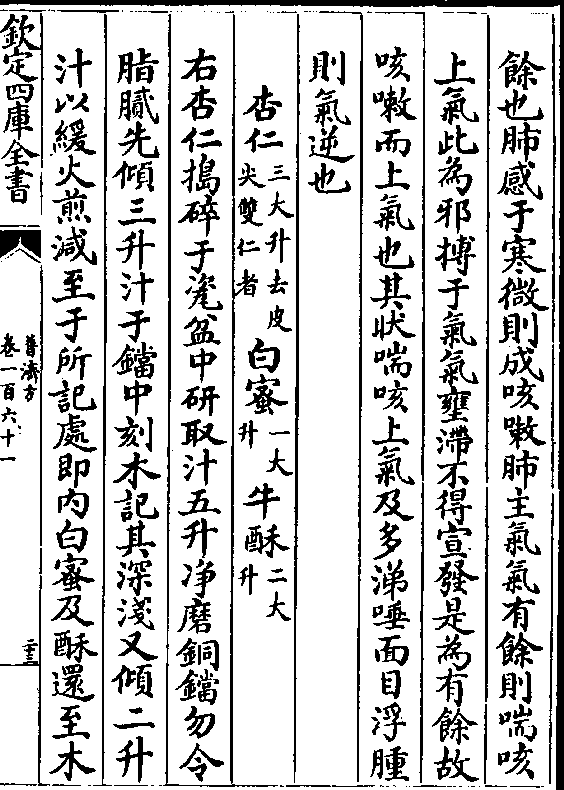 餘也肺感于寒微則成咳嗽肺主氣氣有餘則喘咳
上氣此為邪搏于氣氣壅滯不得宣發是為有餘故
咳嗽而上氣也其狀喘咳上氣及多涕唾面目浮腫
則氣逆也
杏仁三大升去皮尖雙仁者 白蜜一大升 牛酥二大升
右杏仁搗碎于瓷盆中研取汁五升净磨銅鐺勿令
脂膩先傾三升汁于鐺中刻木記其深淺又傾二升
汁以緩火煎減至于所記處即内白蜜及酥還至木
欽定四庫全書
普濟方
卷一百六十一
二十三